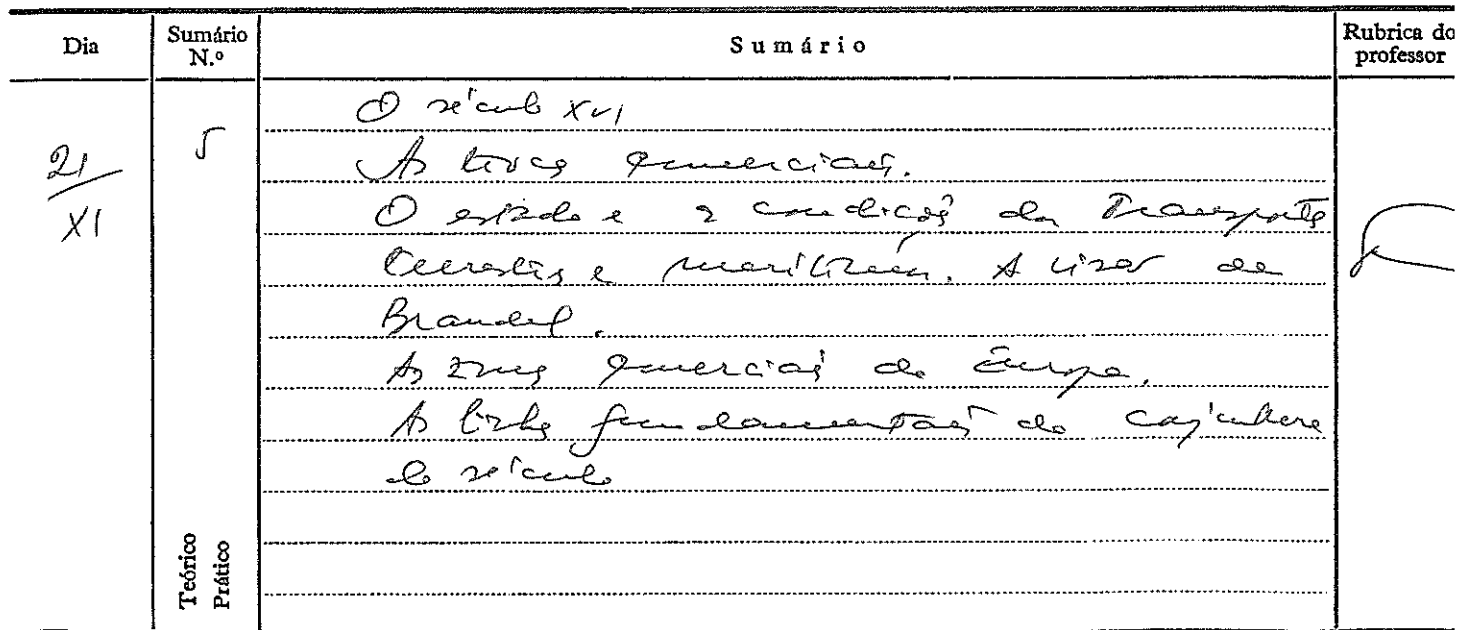 Dia Sumário N.º Sumário Rubrica do professor
21/XI 5 O século XVI
As trocas comerciais.
O estado e as condições dos Transportes
terrestres e marítimos. A visão de
Braudel.
As zonas comerciais da Europa.
As linhas fundamentais da conjuntura
do século
Teórico
Prático